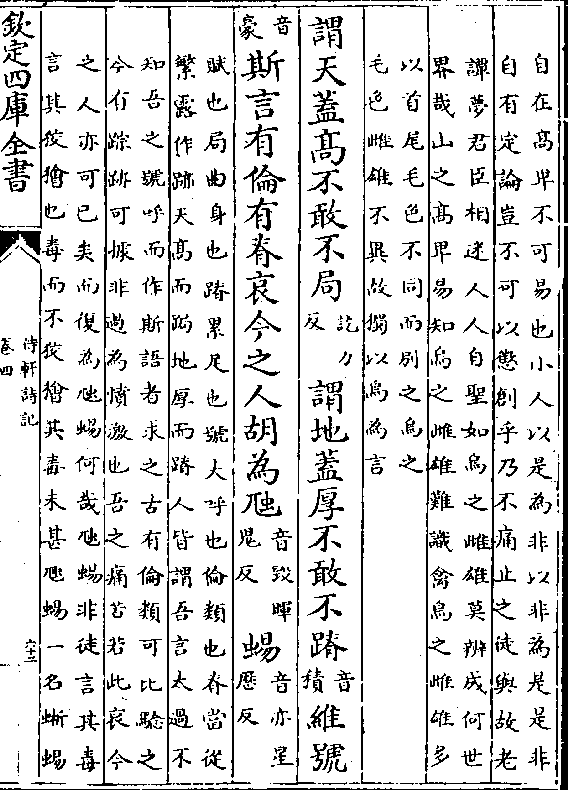 自在髙卑不可易也小人以是為非以非為是是非
自有定論豈不可以懲創乎乃不痛止之徒與故老
譚夢君臣相迷人人自聖如烏之雌雄莫辨成何世
界哉山之髙卑易知烏之雌雄難識禽鳥之雌雄多
以首尾毛色不同而别之烏之
毛色雌雄不異故獨以烏為言
謂天蓋髙不敢不局訖力反謂地蓋厚不敢不蹐音積維號
音豪斯言有倫有脊哀今之人胡為虺音毀暉鬼反蜴音亦星歴反
賦也局曲身也蹐累足也號大呼也倫類也脊當從
繁露作跡天髙而跼地厚而蹐人皆謂吾言太過不
知吾之號呼而作斯語者求之古有倫類可比騐之
今有踪跡可㨿非過為憤激也吾之痛苦若此哀今
之人亦可已矣而復為虺蜴何哉虺蜴非徒言其毒
言其狡獪也毒而不狡獪其毒未甚虺蜴一名蜥蜴
欽定四庫全書
待軒詩記
卷四
六十三